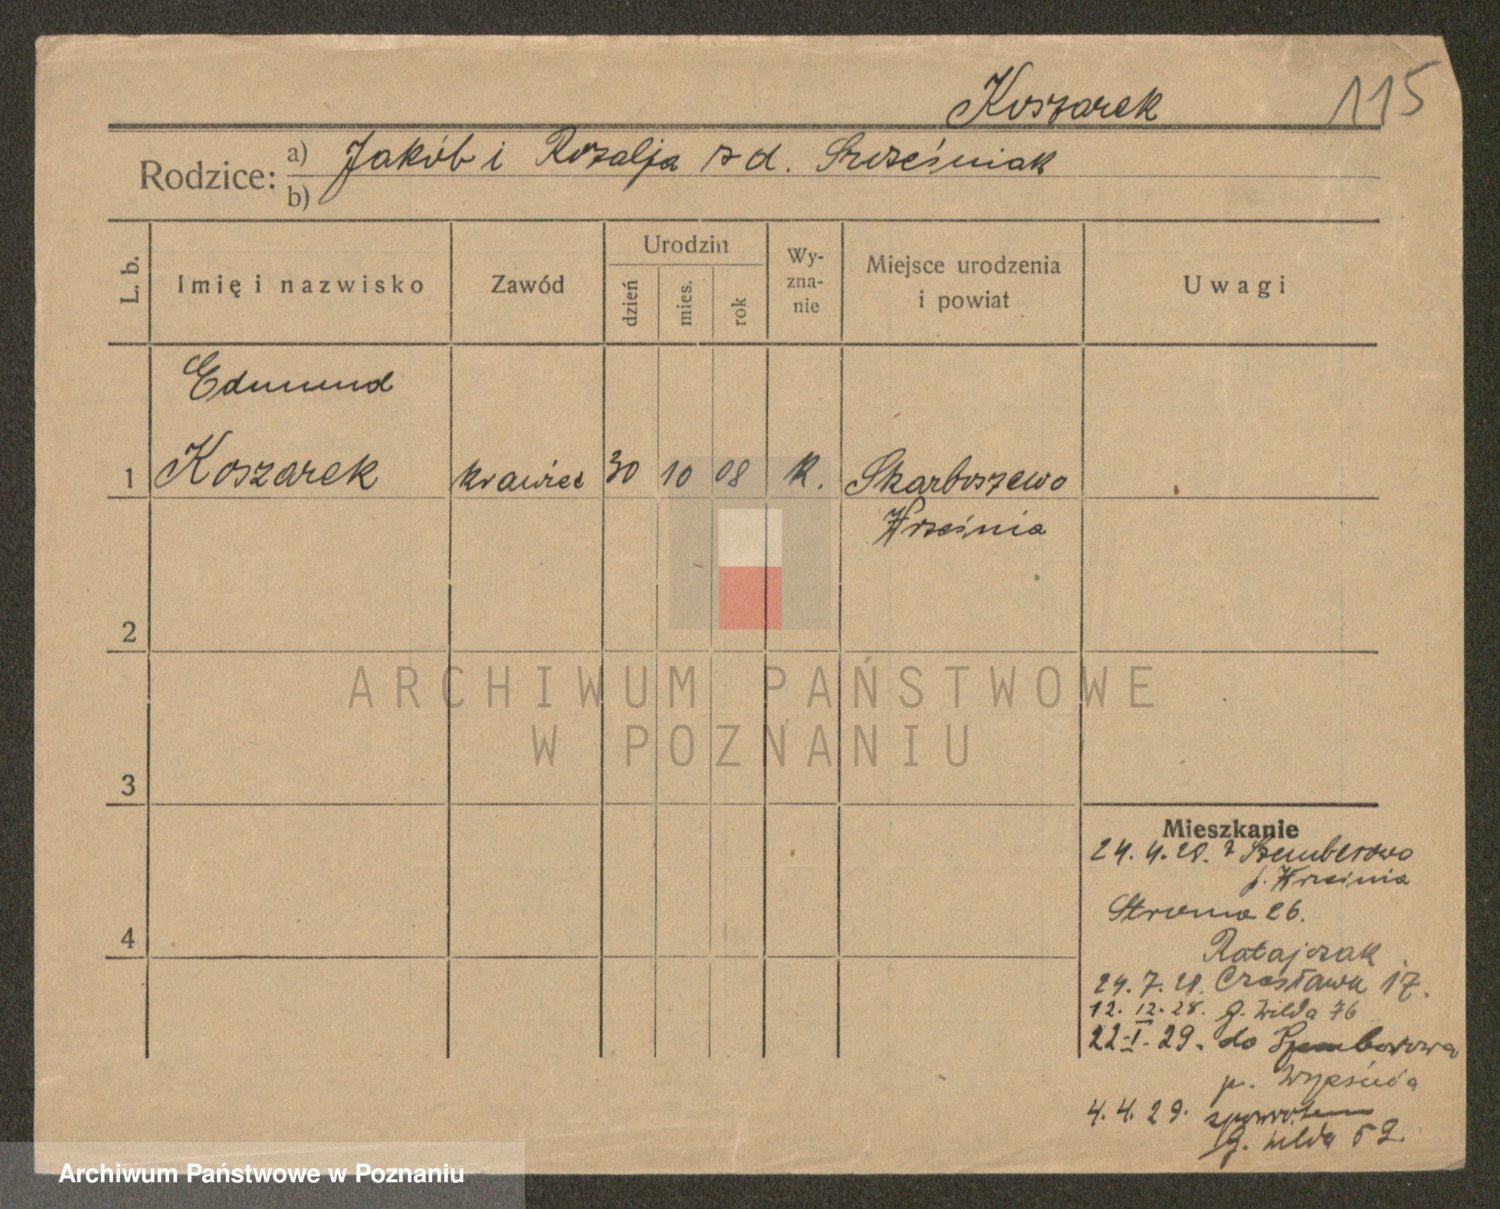 Koszarek 115
Rodzice: a) Jakób i Rozalja z d. Szcześniak
b)
L. b. Imię i nazwisko Zawód Urodzin dzień mies. rok Wyznanie Miejsce urodzenia i powiat Uwagi
Edmund
1 Koszarek krawiec 30 10 08 k. Skarboszewo
Września
2
ARCHIWUM PAŃSTWOWE
W POZNANIU
3
Mieszkanie
24. 4. 28. z Szemborowo
p. Września
4
Stroma 26.
Ratajczak
24. 7. 28. Czesława 17.
12. 12. 28. G. Wilda 76
22-I-29. do Szemborowa
p. Września
4. 4. 29. zpowrotem
G. Wilda 59
Archiwum Państwowe w Poznaniu